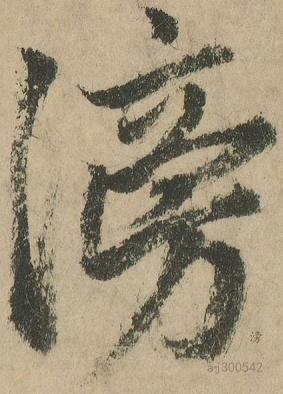 滂
滂
a-j300542